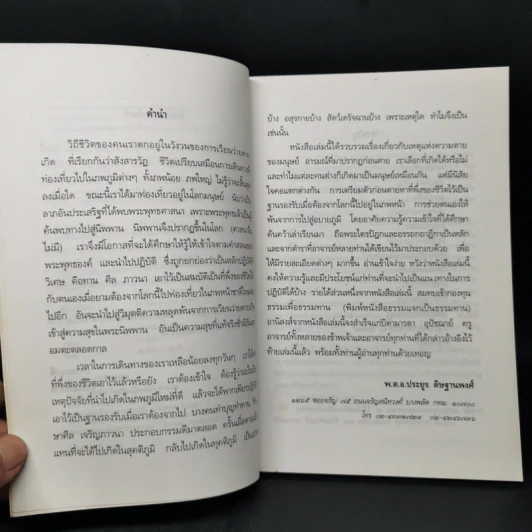 คำนำ
วิถีชีวิตของคนเราตกอยู่ในวังวนของการเวียนว่ายตาย
เกิด ที่เรียกกันว่าสังสารวัฏ ชีวิตเปรียบเสมือนการเดินทาง
ท่องเที่ยวไปในภพภูมิต่างๆ ทั้งภพน้อย ภพใหญ่ ไม่รู้ว่าจะสิ้นสุด
ลงเมื่อใด ขณะนี้เราได้มาท่องเที่ยวอยู่ในโลกมนุษย์ นับว่าเป็น
ลาภอันประเสริฐที่ได้พบพระพุทธศาสนา เพราะพระพุทธเจ้าเป็นผู้
ค้นพบทางไปสู่นิพพาน นิพพานจึงปรากฏขึ้นในโลก
ไม่มี) เราจึงมีโอกาสที่จะได้ศึกษาให้รู้ให้เข้าใจตามคำสอนของ
พระพุทธองค์ และนำไปปฏิบัติ ซึ่งถูกยกย่องว่าเป็นหลักปฏิบัติ
วิเศษ คือทาน ศีล ภาวนา เอาไว้เป็นสมบัติเป็นที่พึ่งของชีวิตให้
กับตนเองเมื่อยามต้องจากโลกนี้ไปท่องเที่ยวในภพหน้าชาติใหม่
ไปอีก อันจะนำไปสู่วิมุตติความหลุดพ้นจากการเวียนว่ายตายเกิด
เข้าสู่ความสุขในพระนิพพาน อันเป็นความสุขที่แท้จริงชั่วนิรันดร์
อมตะตลอดกาล
เวลาในการเดินทางของเราเหลือน้อยลงทุกวันๆ เราได้
ที่พึ่งของชีวิตเอาไว้แล้วหรือยัง เราต้องเข้าใจ ต้องรู้ว่าอะไรเป็น
เหตุปัจจัยที่นำไปเกิดในภพภูมิใหม่ที่ดี แล้วจะได้พากเพียรปฏิบัติ
เอาไว้เป็นฐานรองรับเมื่อเราต้องจากไป บางคนทำบุญทำทาน
ษาศีล เจริญภาวนา ประกอบกรรมดีมาตลอด ครั้นเมื่อตายลง
แทนที่จะได้ไปเกิดในสุคติภูมิ กลับไปเกิดในทุคติภูมิ
บ้าง อสุรกายบ้าง สัตว์เดรัจฉานบ้าง เพราะเหตุใด ทำไมจึงเป็น
เช่นนั้น
หนังสือเล่มนี้ได้รวบรวมเรื่องเกี่ยวกับเหตุแห่งความตาย
ของมนุษย์ อารมณ์ที่มาปรากฏก่อนตาย เราเลือกที่เกิดได้หรือไม่
และทำไมแต่ละคนต่างก็เกิดมาเป็นมนุษย์เหมือนกัน แต่มีนิสัย
ใจคอแตกต่างกัน การเตรียมตัวก่อนตายหาที่พึ่งของชีวิตไว้เป็น
ฐานรองรับเมื่อต้องจากโลกนี้ไปอยู่ในภพหน้า การช่วยตนเองให้
พ้นจากการไปสู่อบายภูมิ โดยอาศัยความรู้ความเข้าใจที่ได้ศึกษา
ค้นคว้าเล่าเรียนมา ถือพระไตรปิฎกและอรรถกถาฎีกาเป็นหลัก
และจากตำราที่อาจารย์หลายท่านได้เขียนไว้มาประกอบด้วย เพื่อ
ให้มีรายละเอียดต่างๆ มากขึ้น อ่านเข้าใจง่าย หวังว่าหนังสือเล่มนี้
คงให้ความรู้และมีประโยชน์แก่ท่านที่จะนำไปเป็นแนวทางในการ
ปฏิบัติได้บ้าง รายได้ส่วนหนึ่งจากหนังสือเล่มนี้ สมทบเข้ากองทุน
ธรรมเพื่อธรรมทาน (พิมพ์หนังสือธรรมแจกเป็นธรรมทาน)
อานิสงส์จากหนังสือเล่มนี้จงสำเร็จแก่บิดามารดา อุปัชฌาย์ ครู
อาจารย์ทั้งหลายของข้าพเจ้าและอาจารย์ทุกท่านที่ได้กล่าวอ้างอิงไว้
ท้ายเล่มนี้แล้ว พร้อมทั้งท่านผู้อ่านทุกท่านด้วยเทอญ
พ.ต.อ.ประยูร ดิษฐานพงศ์